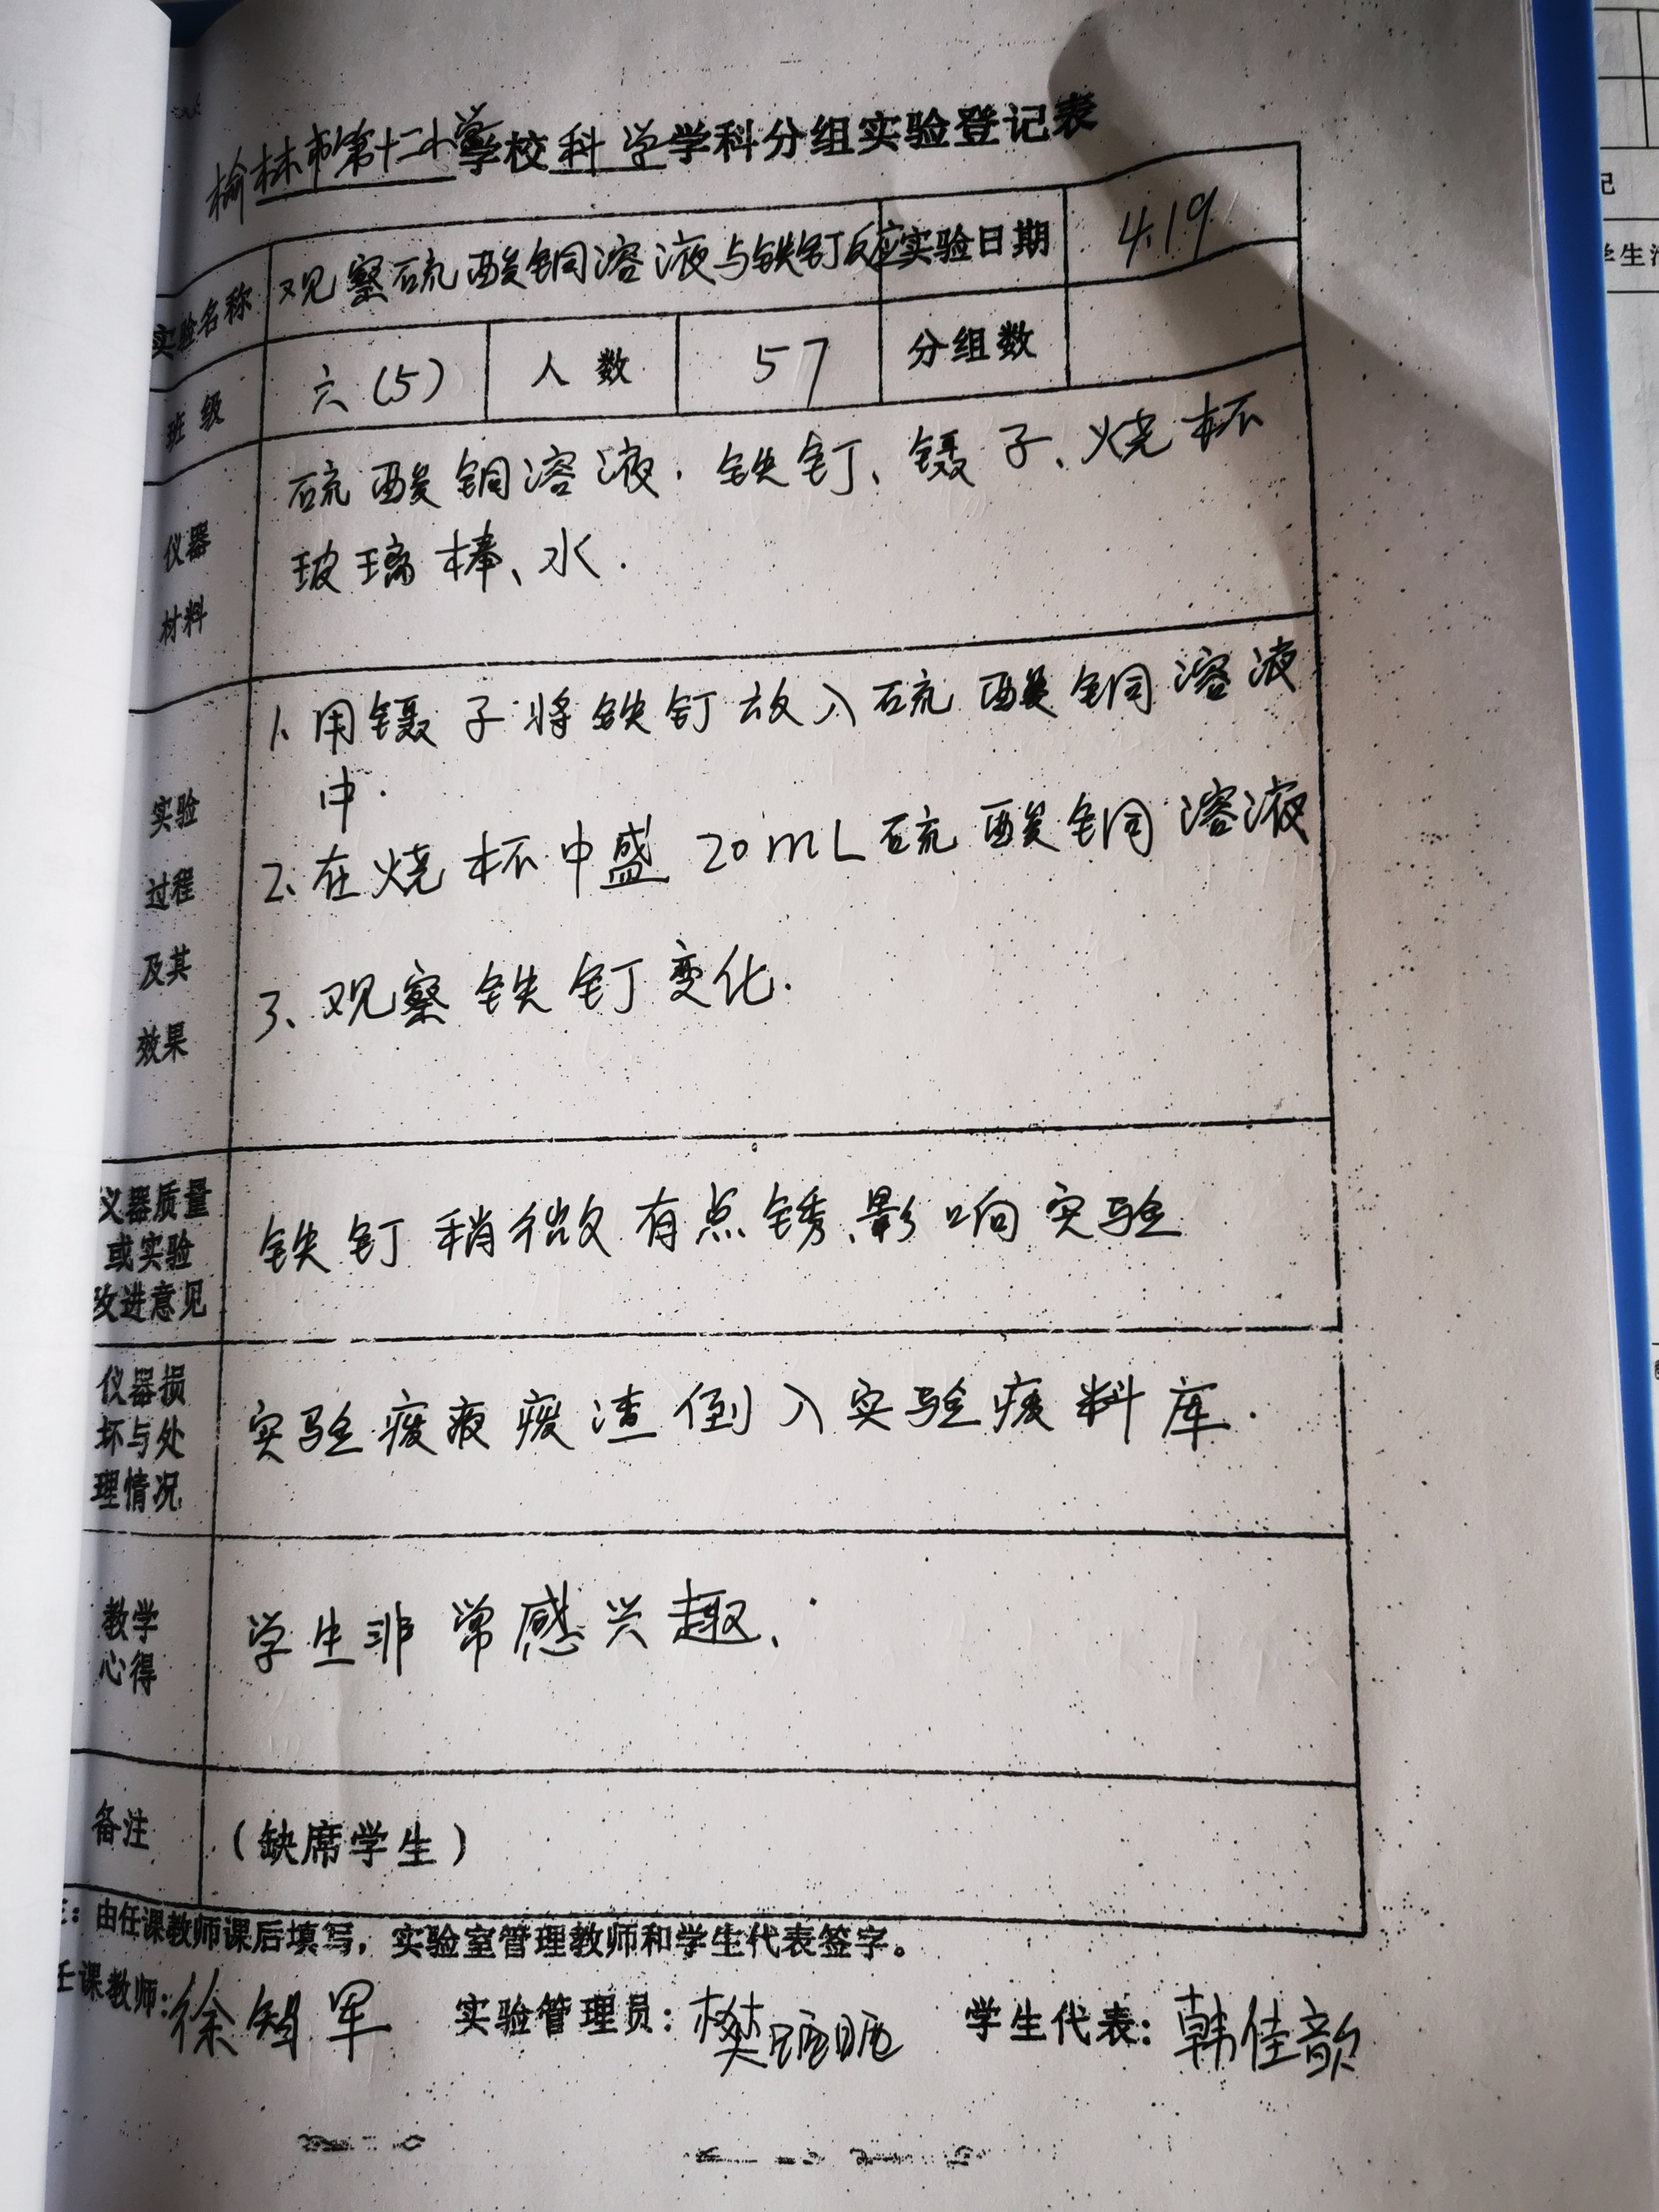 榆林市第十二小学学校科学学科分组实验登记表
实验名称 观察硫酸铜溶液与铁钉反应 实验日期 4.19
班级 六(5) 人数 57 分组数
仪器
材料
硫酸铜溶液、铁钉、镊子、烧杯
玻璃棒、水.
实验
过程
及其
效果
1、用镊子将铁钉放入硫酸铜溶液
中.
2、在烧杯中盛20mL硫酸铜溶液
3、观察铁钉变化.
仪器质量
或实验
改进意见
铁钉稍微有点锈,影响实验
仪器损
坏与处
理情况
实验废液废渣倒入实验废料库.
教学
心得
学生非常感兴趣、
备注 (缺席学生)
注:由任课教师课后填写,实验室管理教师和学生代表签字。
任课教师:徐智军 实验管理员:樊 学生代表:韩佳歆
记
学生